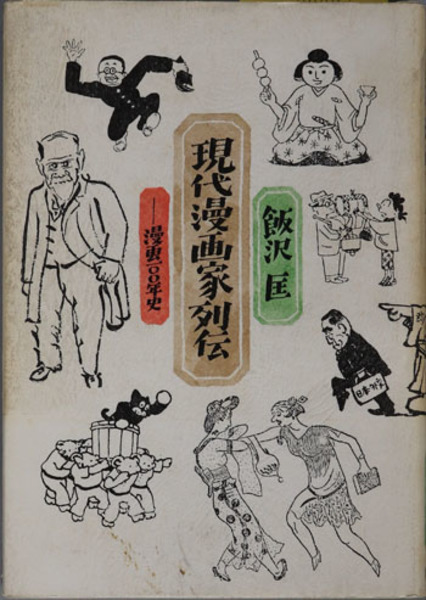 飯沢 匡
現代漫画家列伝
——漫画一〇〇年史